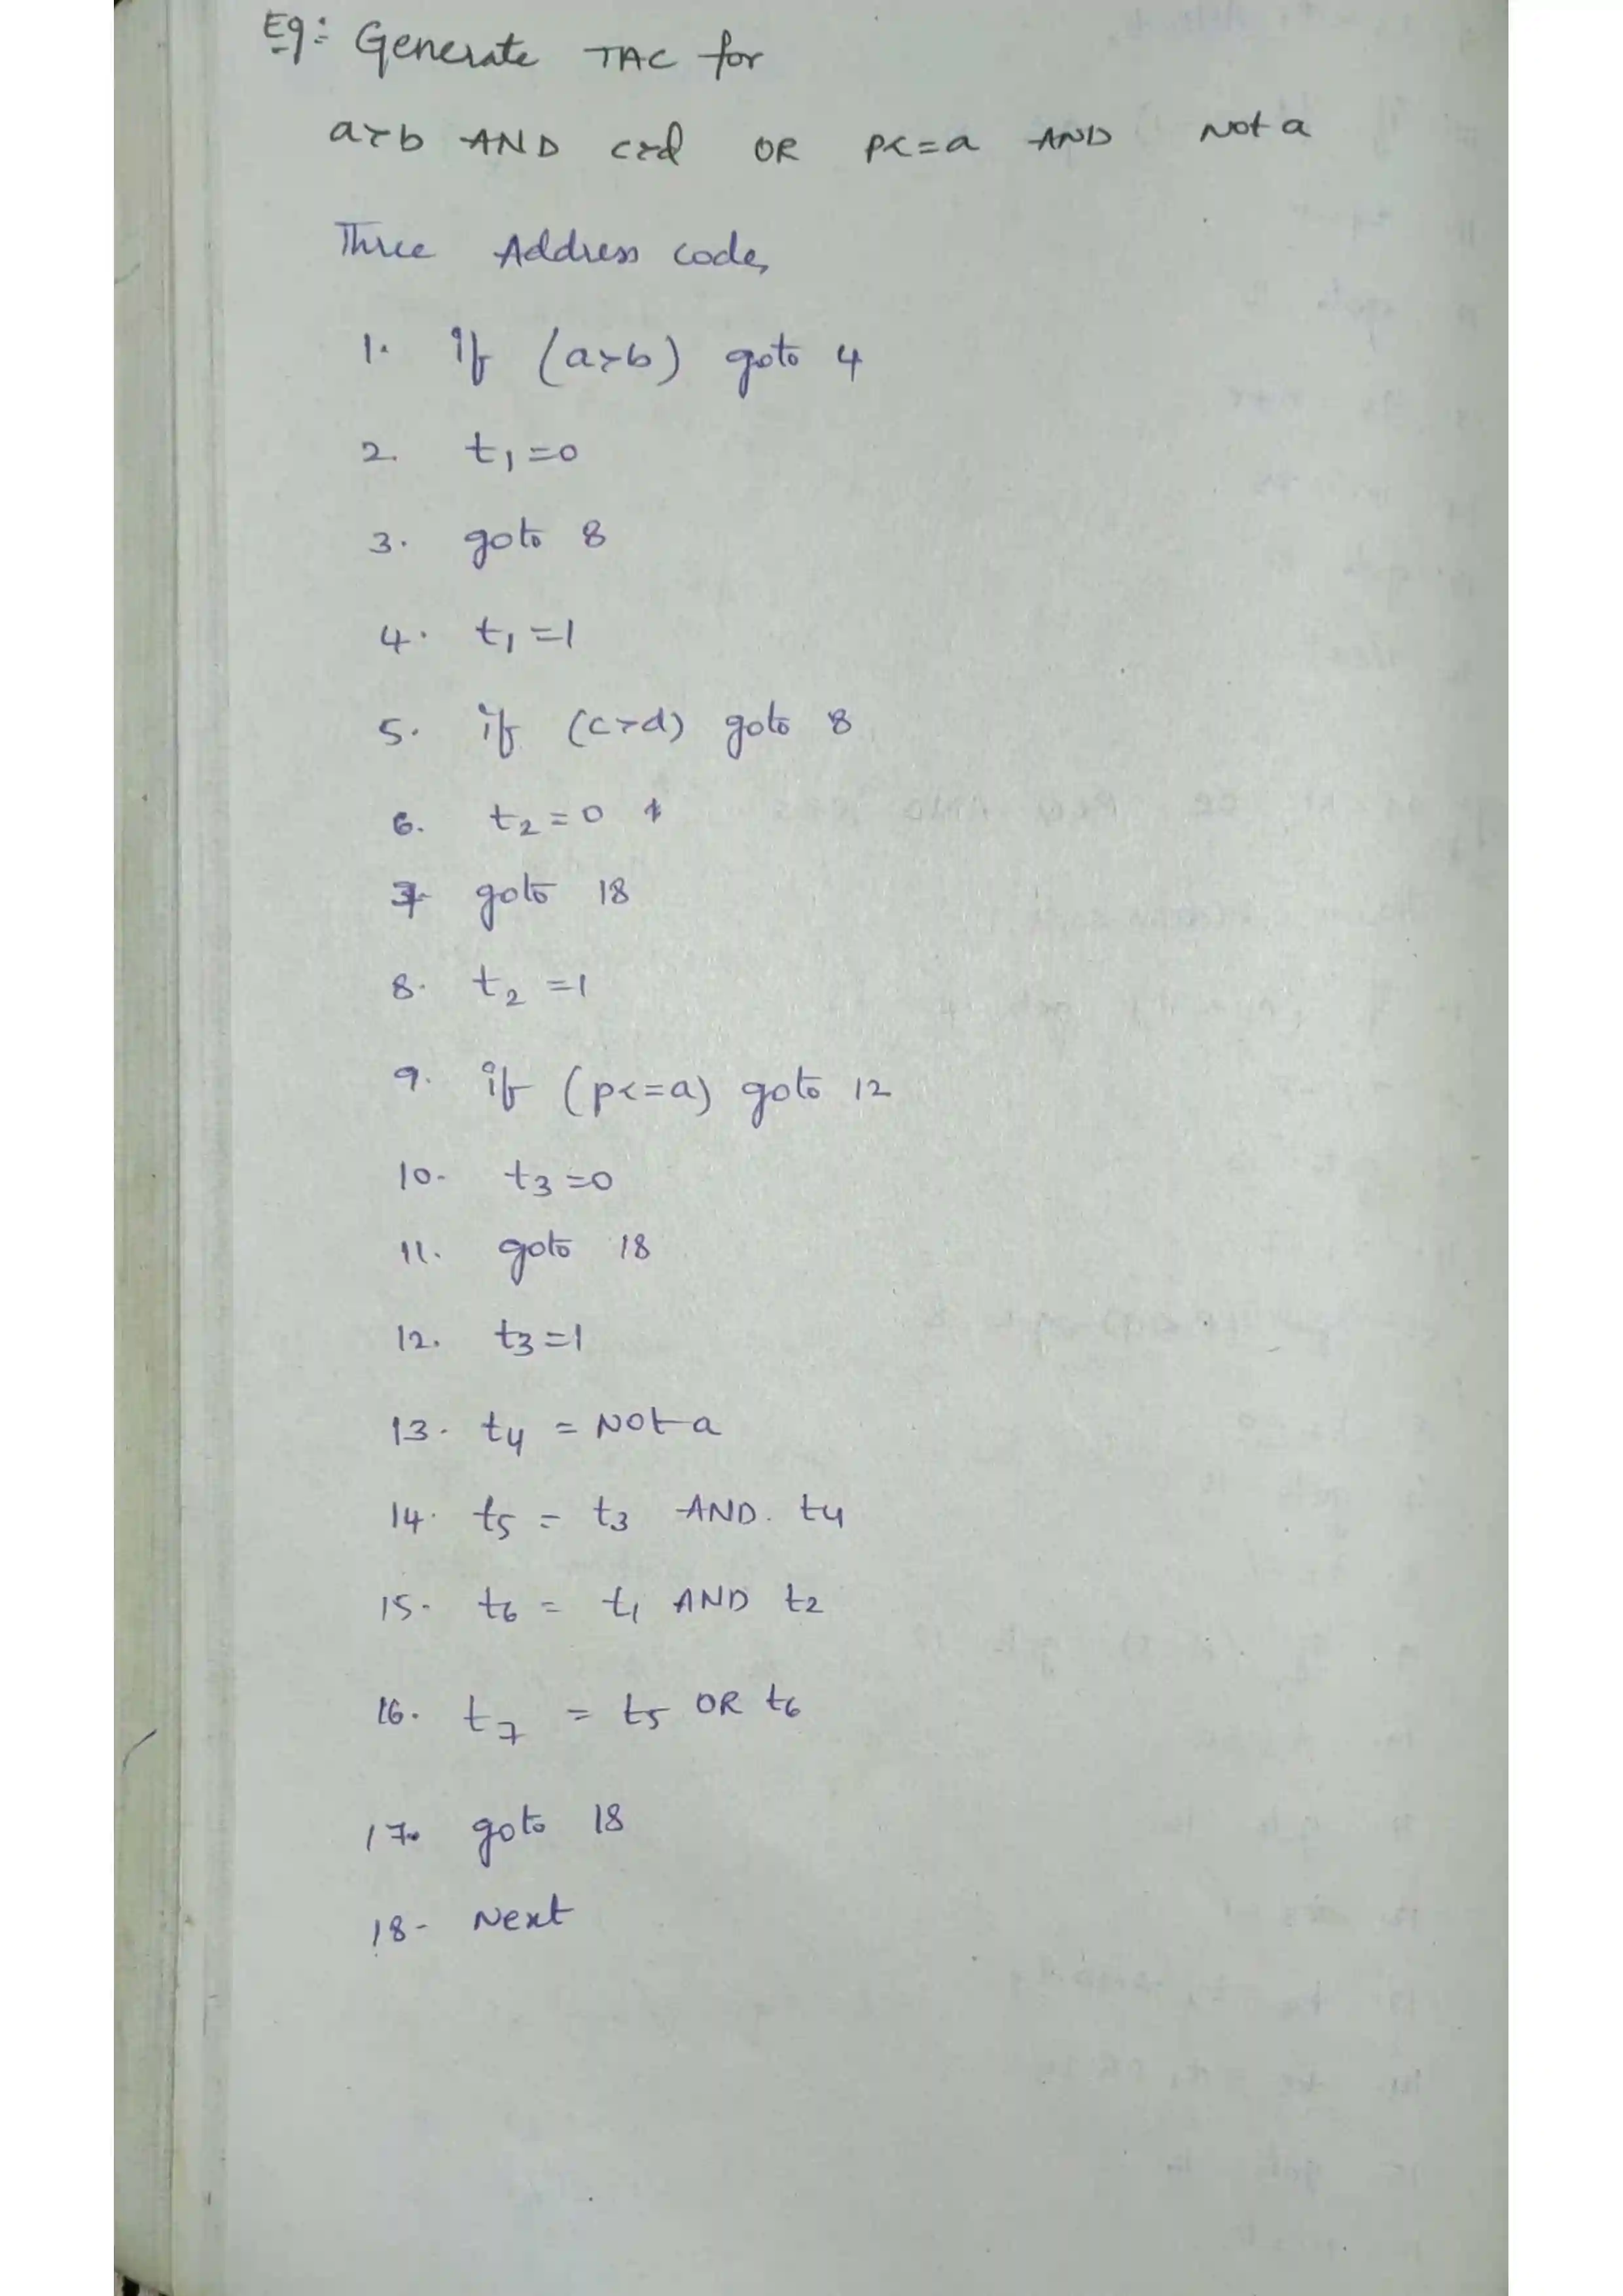 Eg:- Generate TAC for
a>b AND c>d OR p<=a AND Not a
Three Address code,
1. if (a>b) goto 4
2. t1=0
3. goto 8
4. t1=1
5. if (c>d) goto 8
6. t2=0
7 goto 18
8. t2=1
9. if (p<=a) goto 12
10. t3=0
11. goto 18
12. t3=1
13. t4 = Not a
14. t5 = t3 AND. t4
15. t6 = t1 AND t2
16. t7 = t5 OR t6
17. goto 18
18- Next